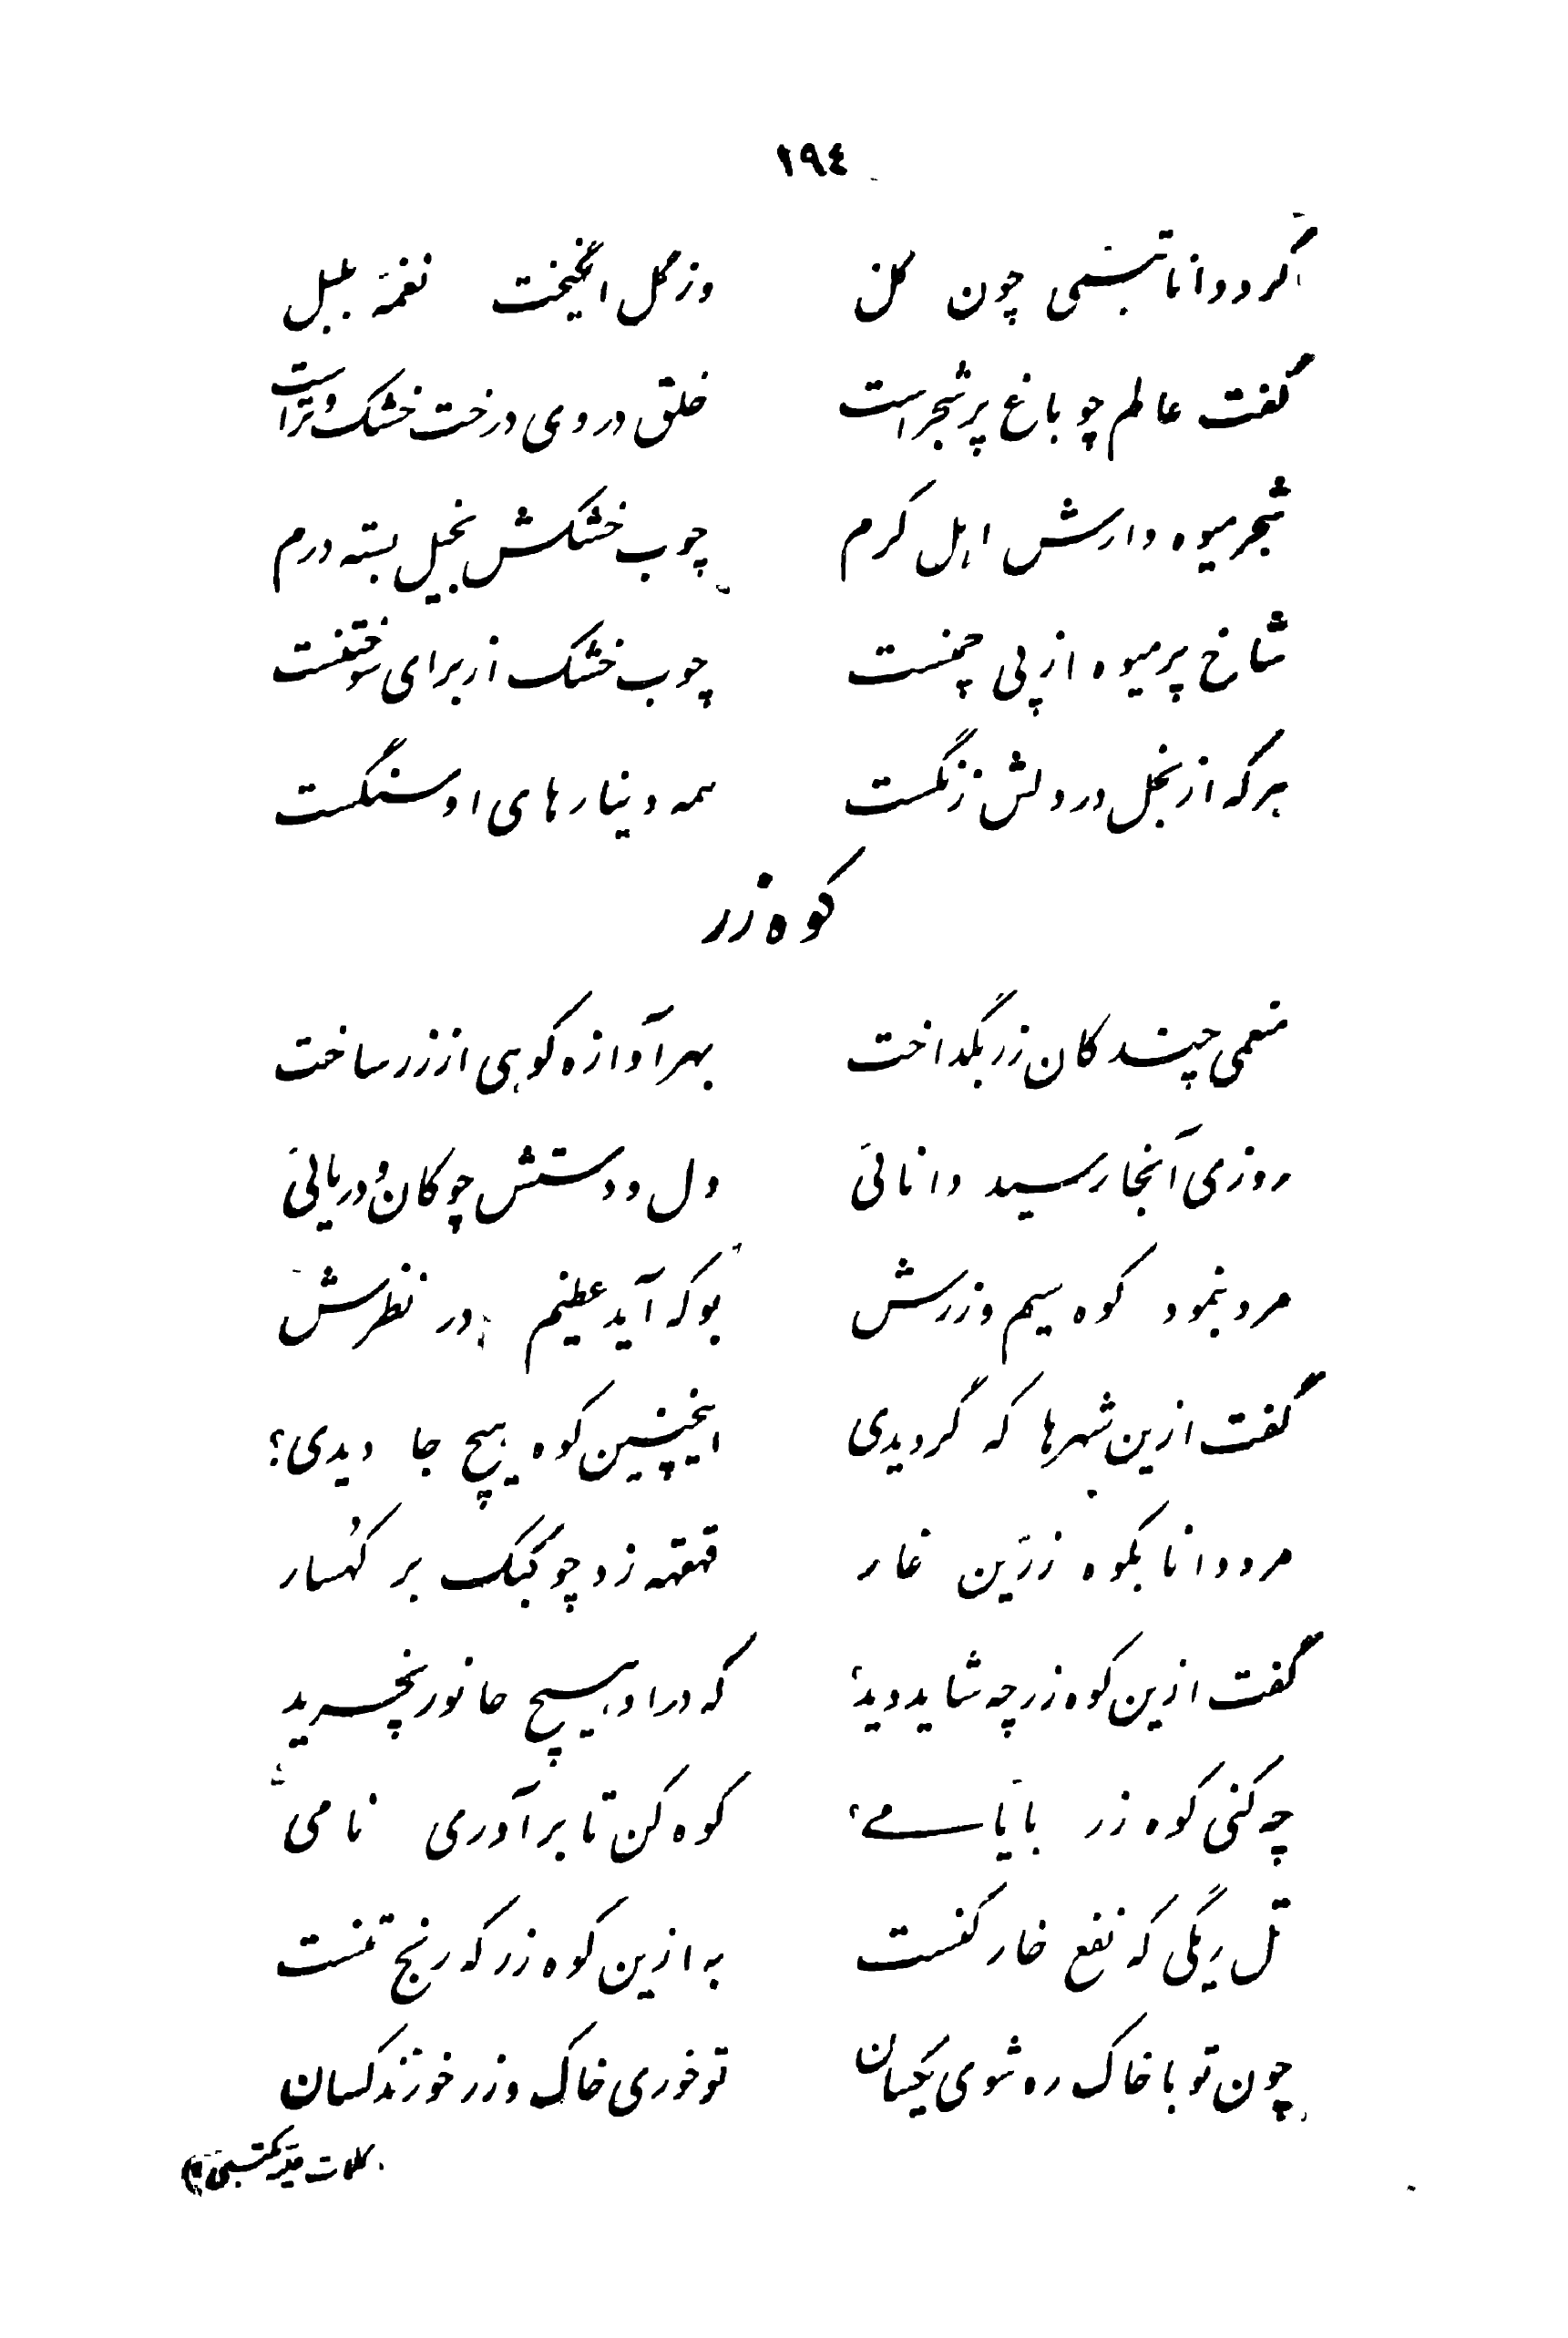 ١٩٤
کرد دانا تبسّمی چون گل وز گل انگیخت نغمهٔ بلبل
گفت عالم چو باغ پرشجراست خلق در وی درخت خشک وتراست
شجر میوه دارش اهل کرم چوب خشکش بخیل بسته درم
شاخ پرمیوه از پی چمنست چوب خشک از برای سوختنست
هر که از بخل در دلش زنگست همه دینارهای او سنگست
کوه زر
منعمی چند کان زر بگداخت بهر آوازه کوهی از زر ساخت
روزی آنجا رسید دانائی دل و دستش چو کان و دریائی
مرد بنمود کوه سیم و زرش بو که آید عظیم در نظرش
گفت ازین شهرها که گردیدی اینچنین کوه هیچ جا دیدی؟
مرد دانا بکوه زرّین غار قهقهه زد چو کبک بر کُهسار
گفت ازین کوه زر چه شاید دید؟ که در او هیچ جانور نچرید
چه کنی کوه زر با یّامی؟ کوه کن تا بر آوری نامی
تل ریگی که نفع خارکنست به ازین کوه زر که رنج تنست
چون تو با خاک ره شوی یکسان تو خوری خاک و زر خورند کسان
کلمات علیّه مکتبی